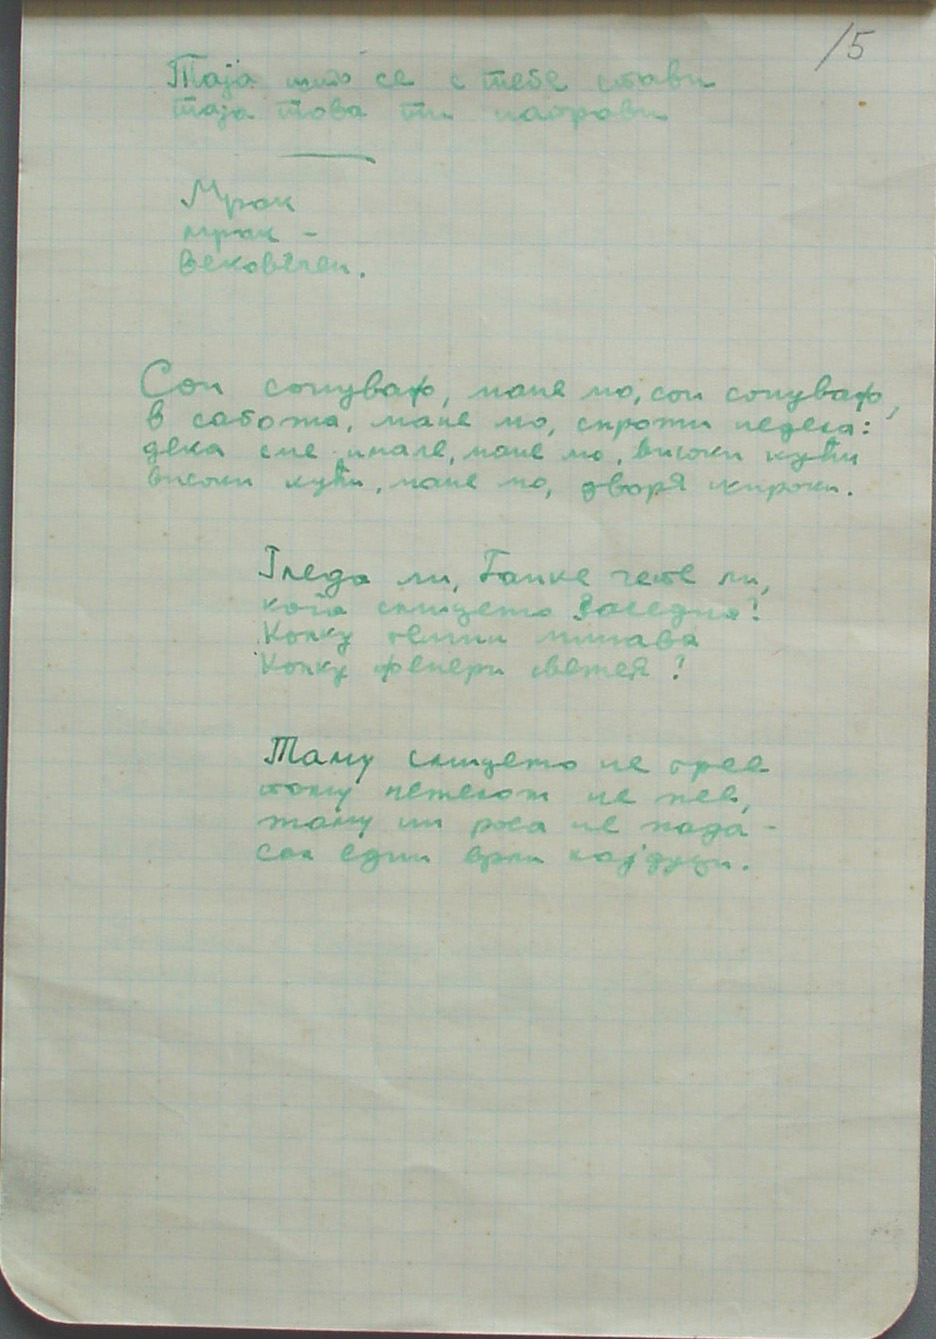 /5
Таја што се с тебе стави
таја това ти направи
Мрак
мрак -
вековечен.
Сон сонуваф, мане мо, сон сонуваф,
в сабота, мане мо, спроти недела:
дека сме имале, мане мо, високи куќи
високи куќи, мане мо, дворја широки.
Гледа ли, Ганке чете ли,
кога слнцето заседна?
Колку минава
Колку фенери светея?
Таму слнцето не грее
таму петелот не пее,
таму ни роса не пада -
сал едни врли кајдуци.